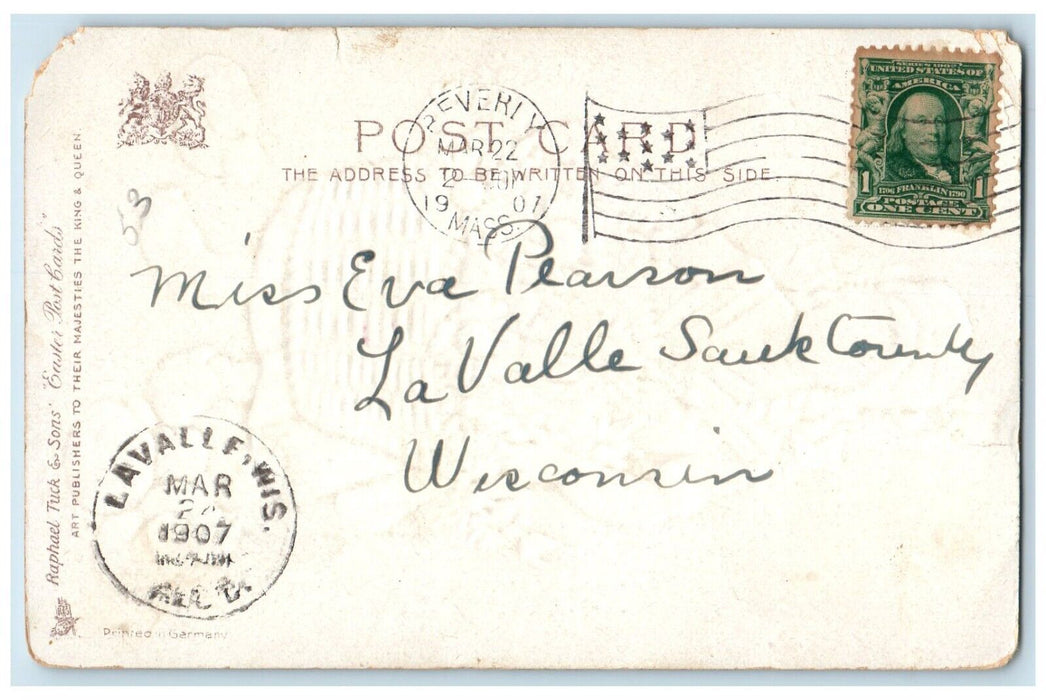 SERIES 1902
UNITED STATES OF
AMERICA
1 1706 FRANKLIN 1790 1
POSTAGE
ONE CENT
BEVERLY
MAR 22
2
19 07
MASS.
POST CARD
THE ADDRESS TO BE WRITTEN ON THIS SIDE.
53
Miss Eva Pearson
La Valle Sauk County
Wisconsin
Raphael Tuck & Sons' "Easter Post Cards"
ART PUBLISHERS TO THEIR MAJESTIES THE KING & QUEEN.
LAVALLE, WIS.
MAR
1907
REC'D.
Printed in Germany